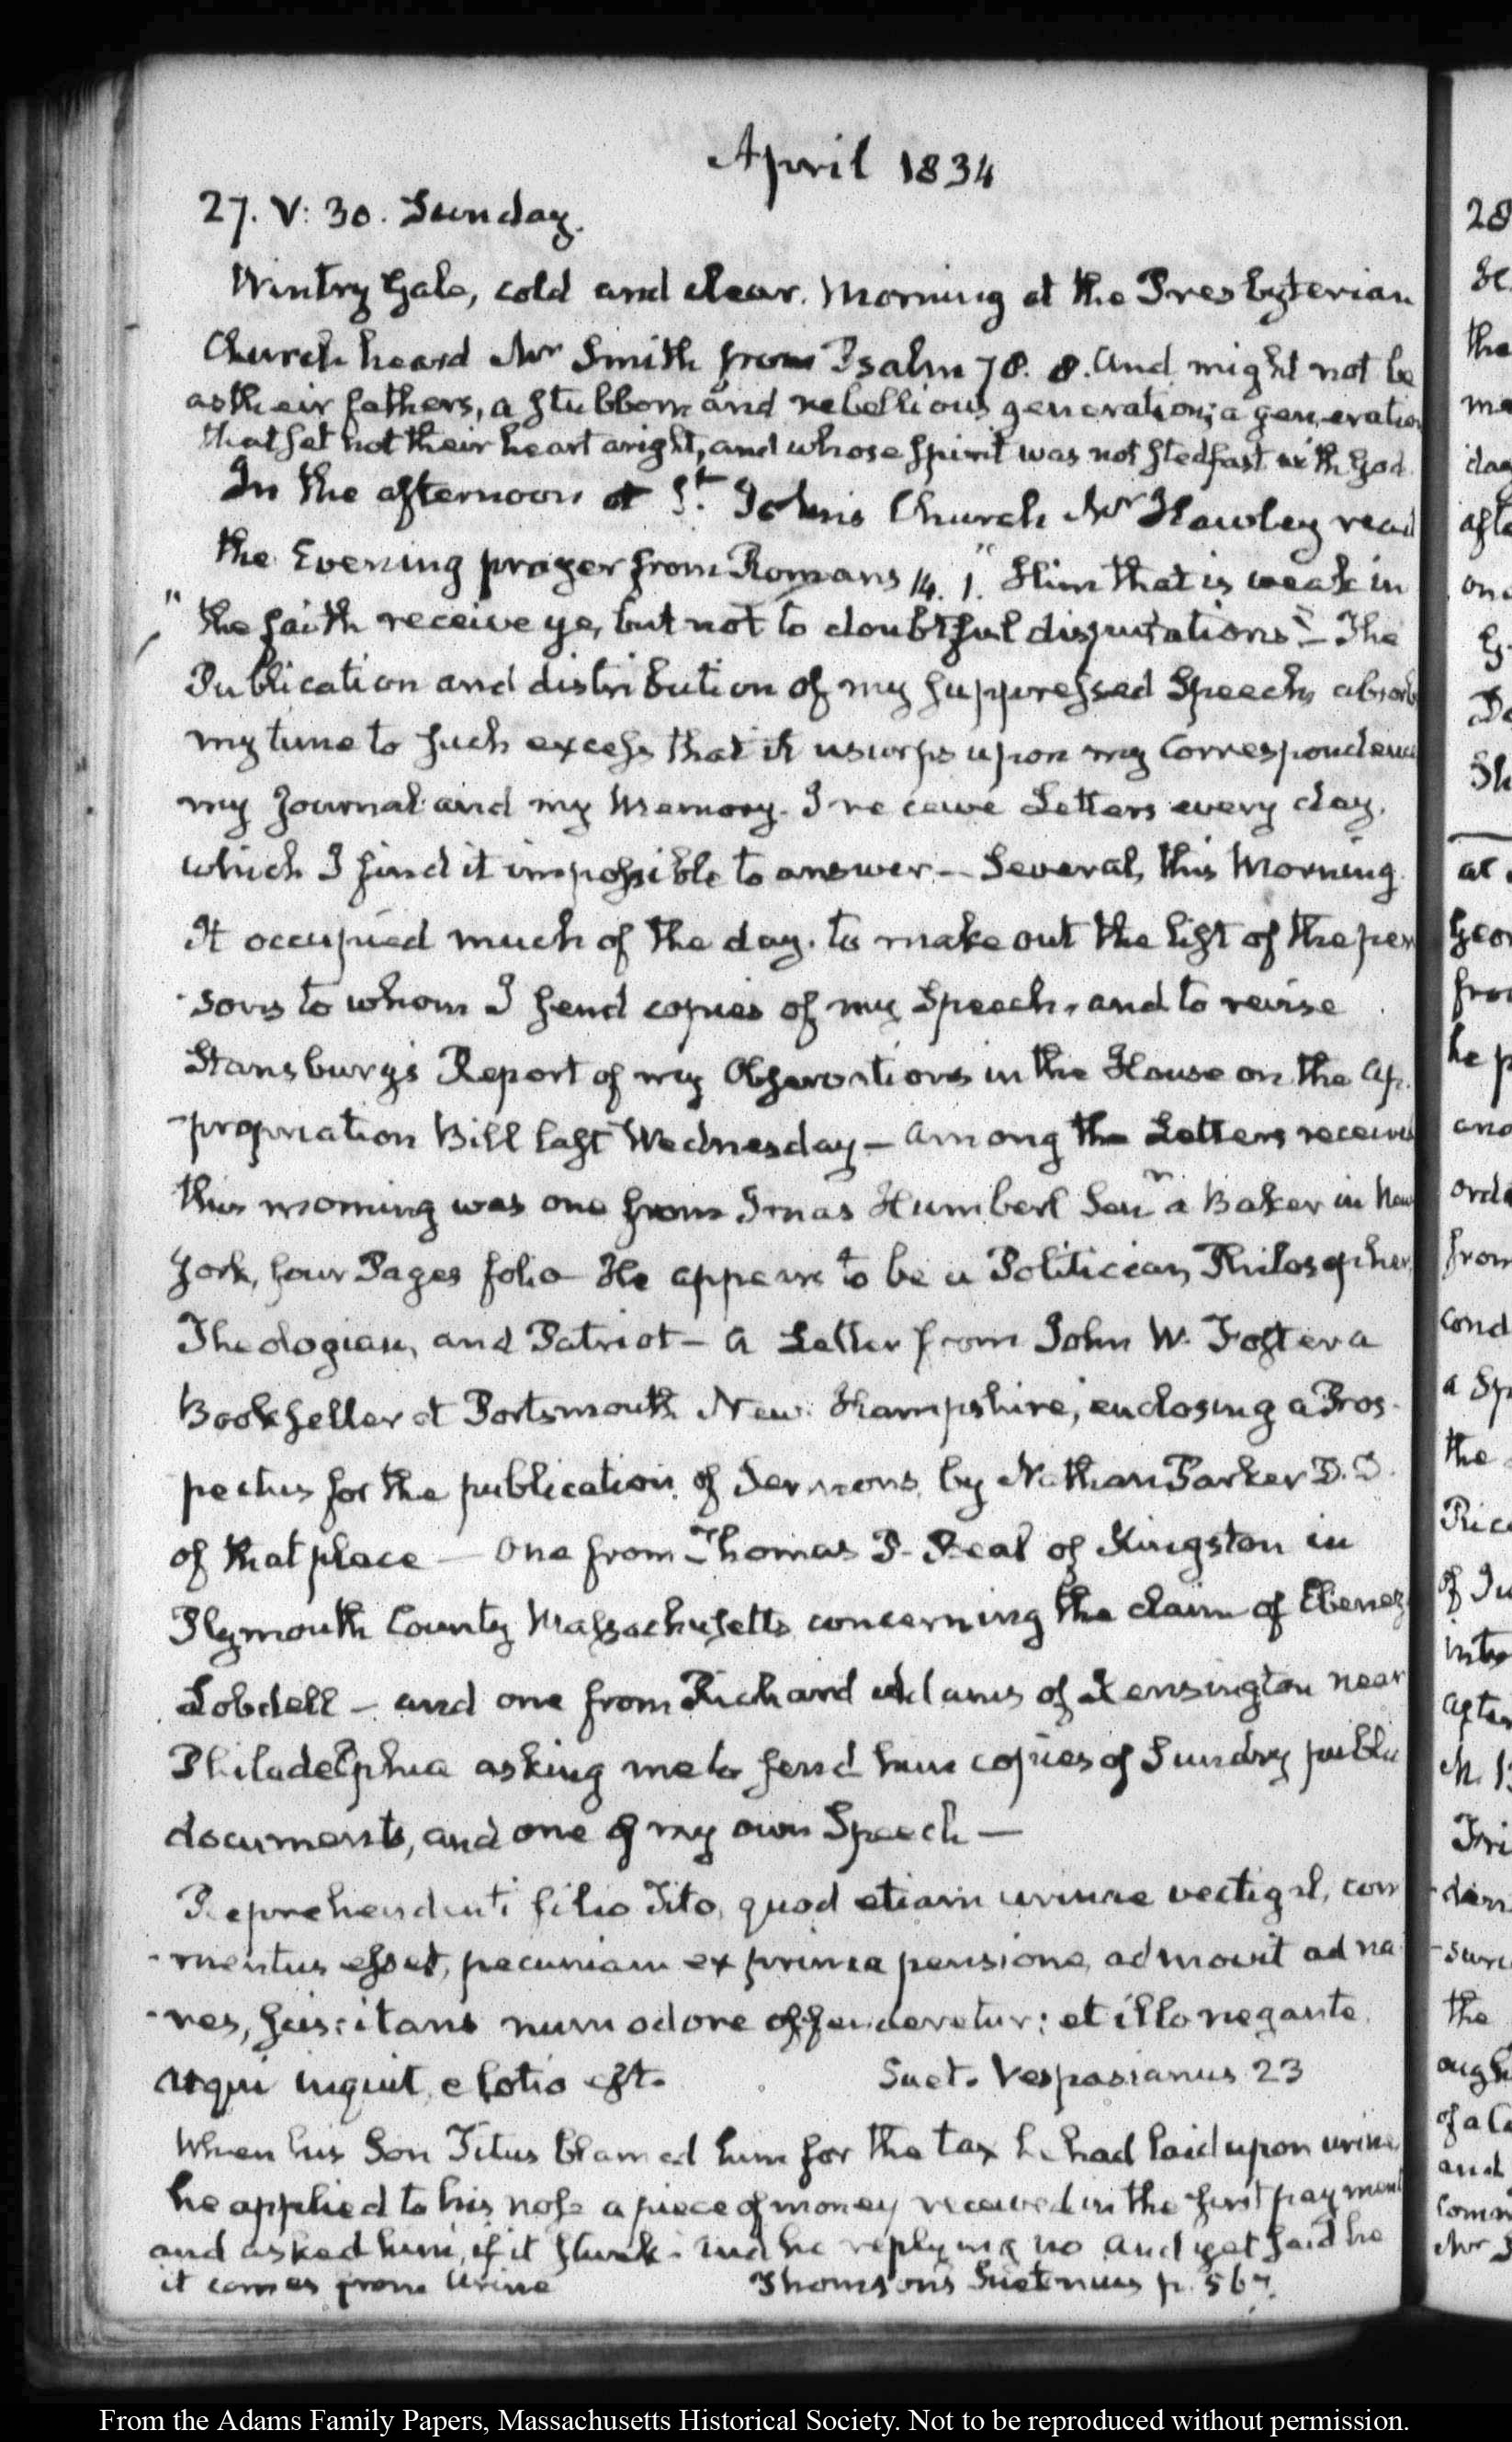 April 1834
27. V: 30. Sunday.
Wintry Gale, cold and clear. Morning at the Presbyterian
Church heard Mr Smith from Psalm 78. 8. And might not be
as their fathers, a stubborn and rebellious generation; a generation
that set not their heart aright, and whose spirit was not stedfast with God.
In the afternoon at St. John's Church Mr Hawley read
the Evening prayer from Romans 14. 1. "Him that is weak in
"the faith receive ye, but not to doubtful disputations" — The
Publication and distribution of my suppressed Speech, absorbs
my time to such excess that it usurps upon my Correspondence
my Journal and my Memory. I receive Letters every day,
which I find it impossible to answer — Several, this Morning.
It occupied much of the day, to make out the list of the per
-sons to whom I send copies of my Speech, and to revise
Stansbury's Report of my Observations in the House on the Ap-
-propriation Bill last Wednesday — Among the Letters received
this morning was one from Jonas Humbert Senr. a Baker in New
York, four Pages folio He appears to be a Politician, Philosopher,
Theologian, and Patriot — A Letter from John W. Foster a
Bookseller at Portsmouth New Hampshire, enclosing a Pros-
pectus for the publication of Sermons, by Nathan Parker D.D.
of that place — One from Thomas P. Beal of Kingston in
Plymouth County Massachusetts concerning the claim of Ebenezer
Lobdell — and one from Richard Adams of Kensington near
Philadelphia asking me to send him copies of Sundry public
documents, and one of my own Speech —
Reprehendenti filio Tito, quod etiam urinae vectigal, com
-mentus esset, pecuniam ex prima pensione, admovit ad na
-res, suscitans num odore offenderetur; et illo negante,
atqui inquit, e lotio est. Suet. Vespasianus 23
When his Son Titus blamed him for the tax he had laid upon urine,
he applied to his nose a piece of money received in the first payment
and asked him, if it stunk. And he replying no And yet said he
it comes from Urine Thomson's Suetonius p. 567.
28
the
at
he p
and
from
a Sp
the
of Ju
the
and
From the Adams Family Papers, Massachusetts Historical Society. Not to be reproduced without permission.